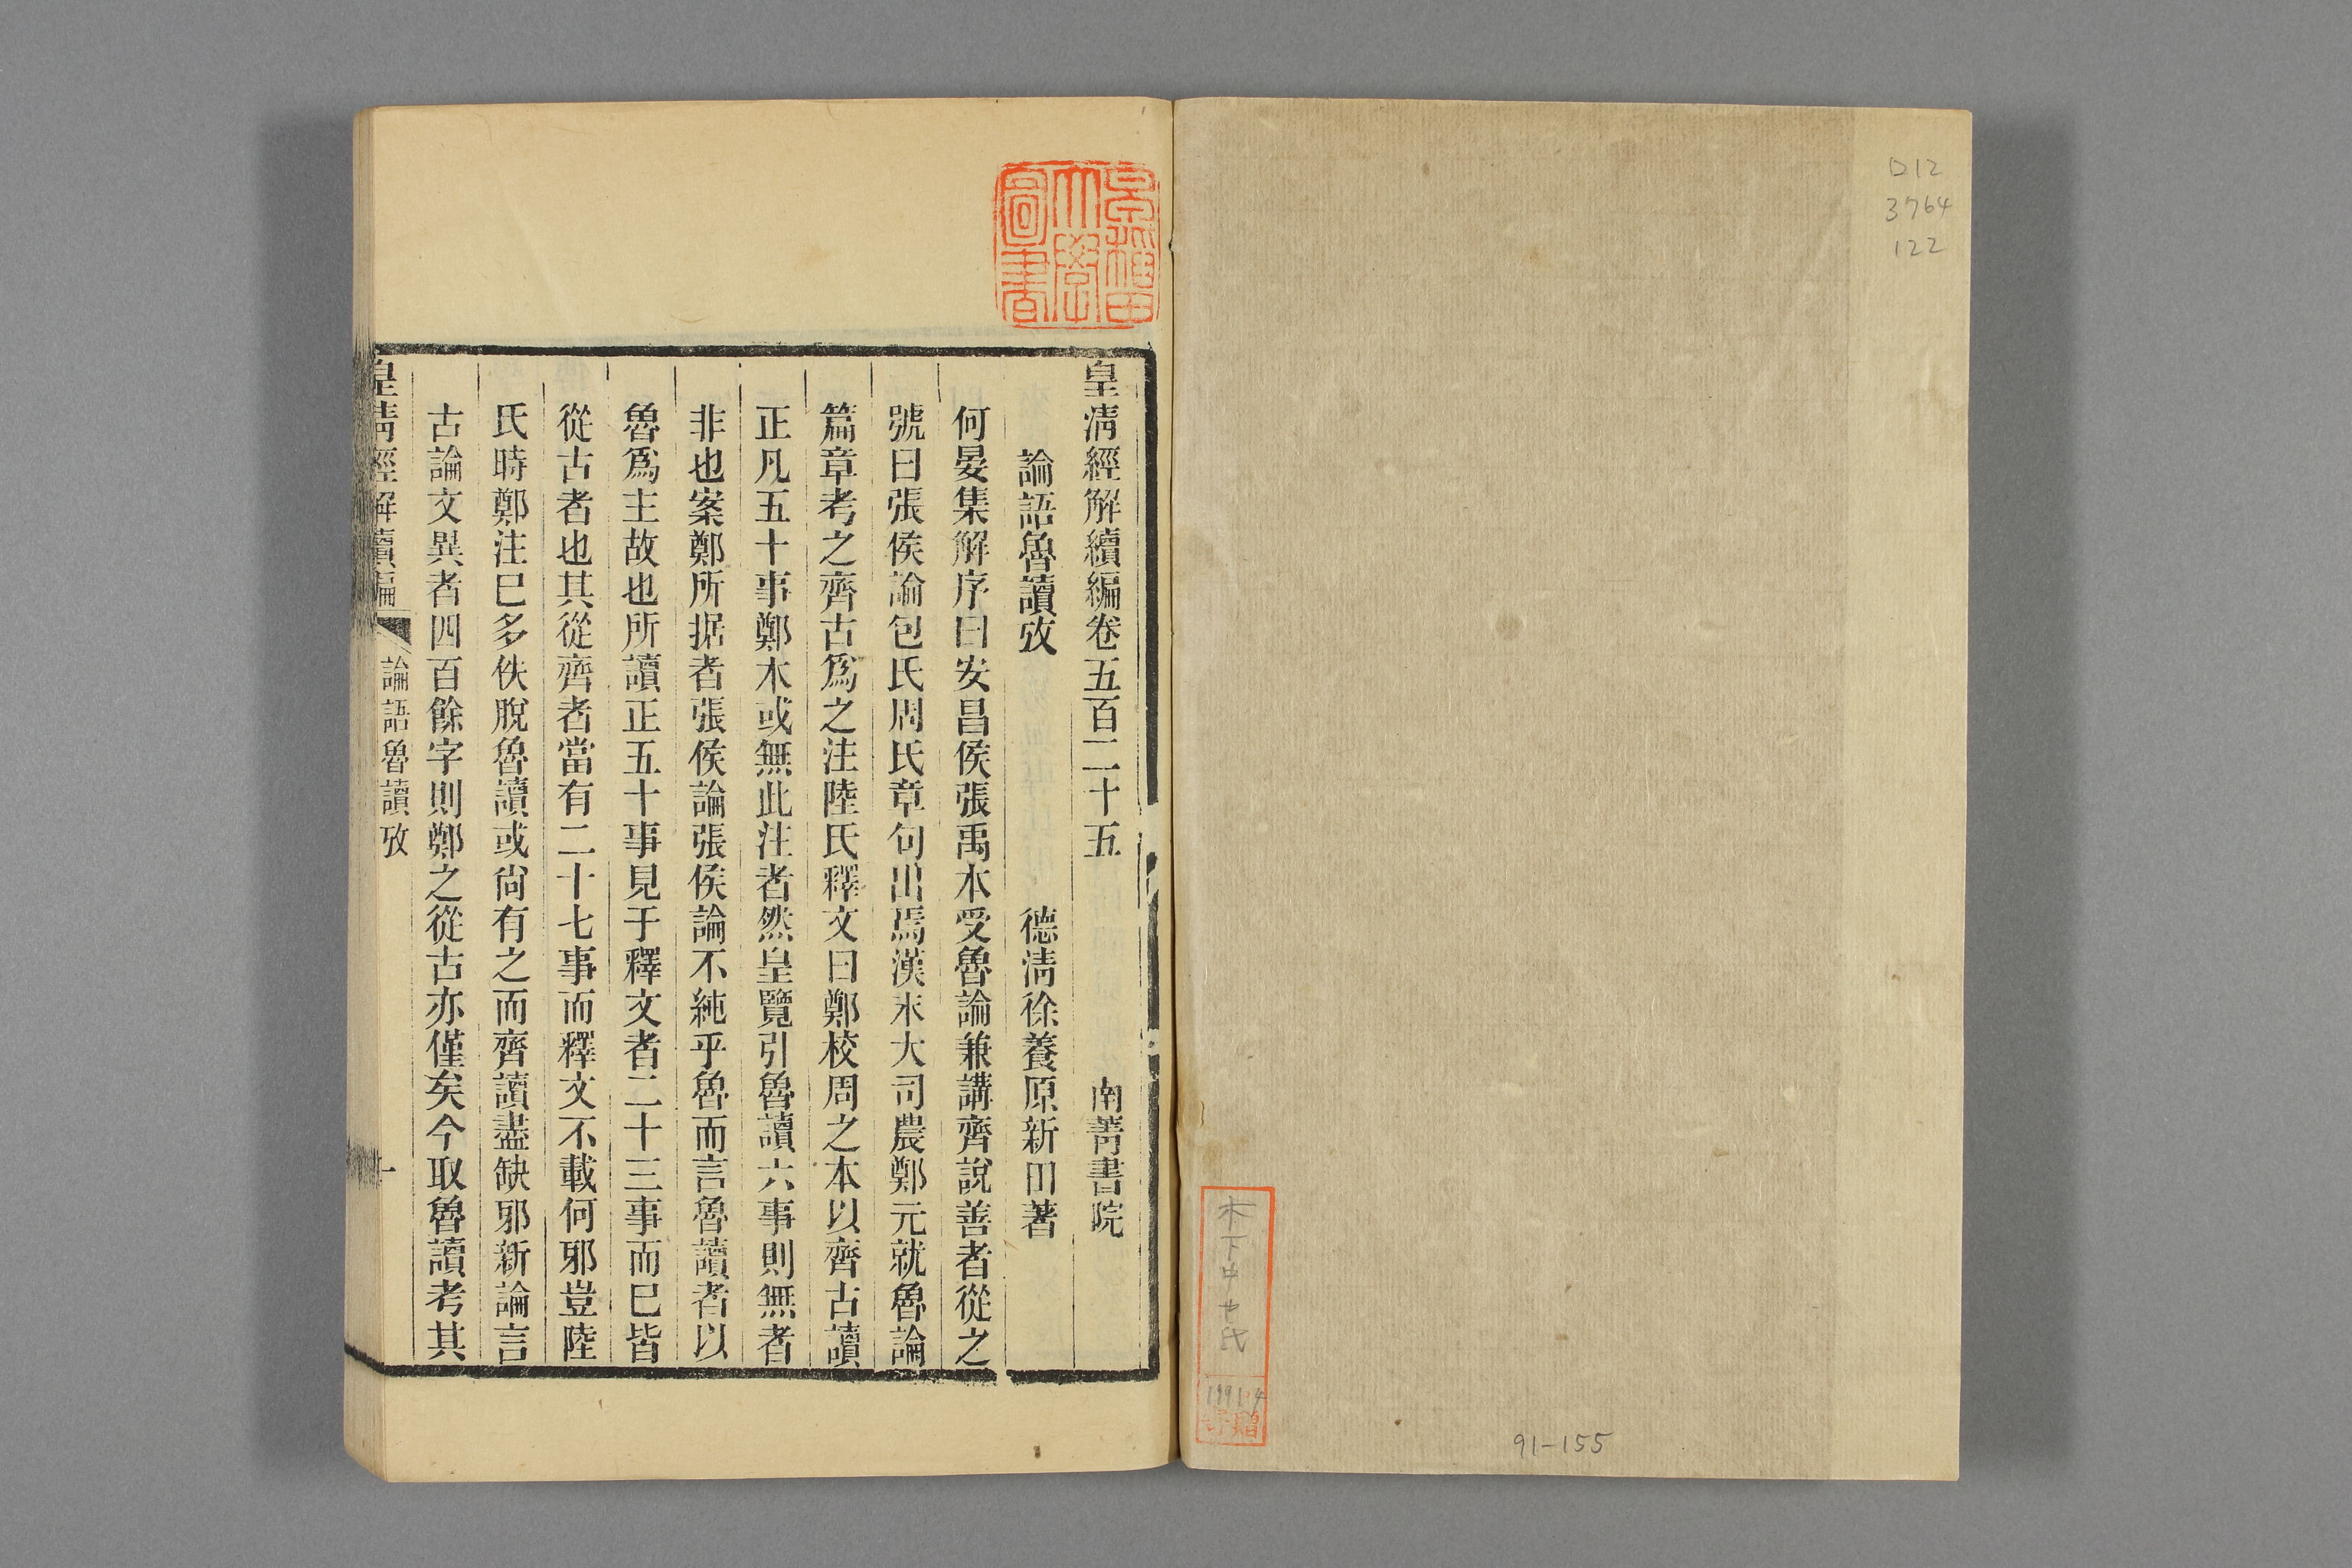 D12
3764
122
木下中廿氏
1991.4
寄贈
91-155
早稲田
大學
圖書
皇清經解續編卷五百二十五　南菁書院
論語魯讀攷　德清徐養原新田著
何晏集解序曰安昌侯張禹本受魯論兼講齊說善者從之
號曰張侯論包氏周氏章句出焉漢末大司農鄭元就魯論
篇章考之齊古爲之注陸氏釋文曰鄭校周之本以齊古讀
正凡五十事鄭本或無此注者然皇覽引魯讀六事則無者
非也案鄭所据者張侯論張侯論不純乎魯而言魯讀者以
魯爲主故也所讀正五十事見于釋文者二十三事而已皆
從古者也其從齊者當有二十七事而釋文不載何邪豈陸
氏時鄭注已多佚脫魯讀或尚有之而齊讀盡缺邪新論言
古論文異者四百餘字則鄭之從古亦僅矣今取魯讀考其
皇清經解續編　論語魯讀攷　一